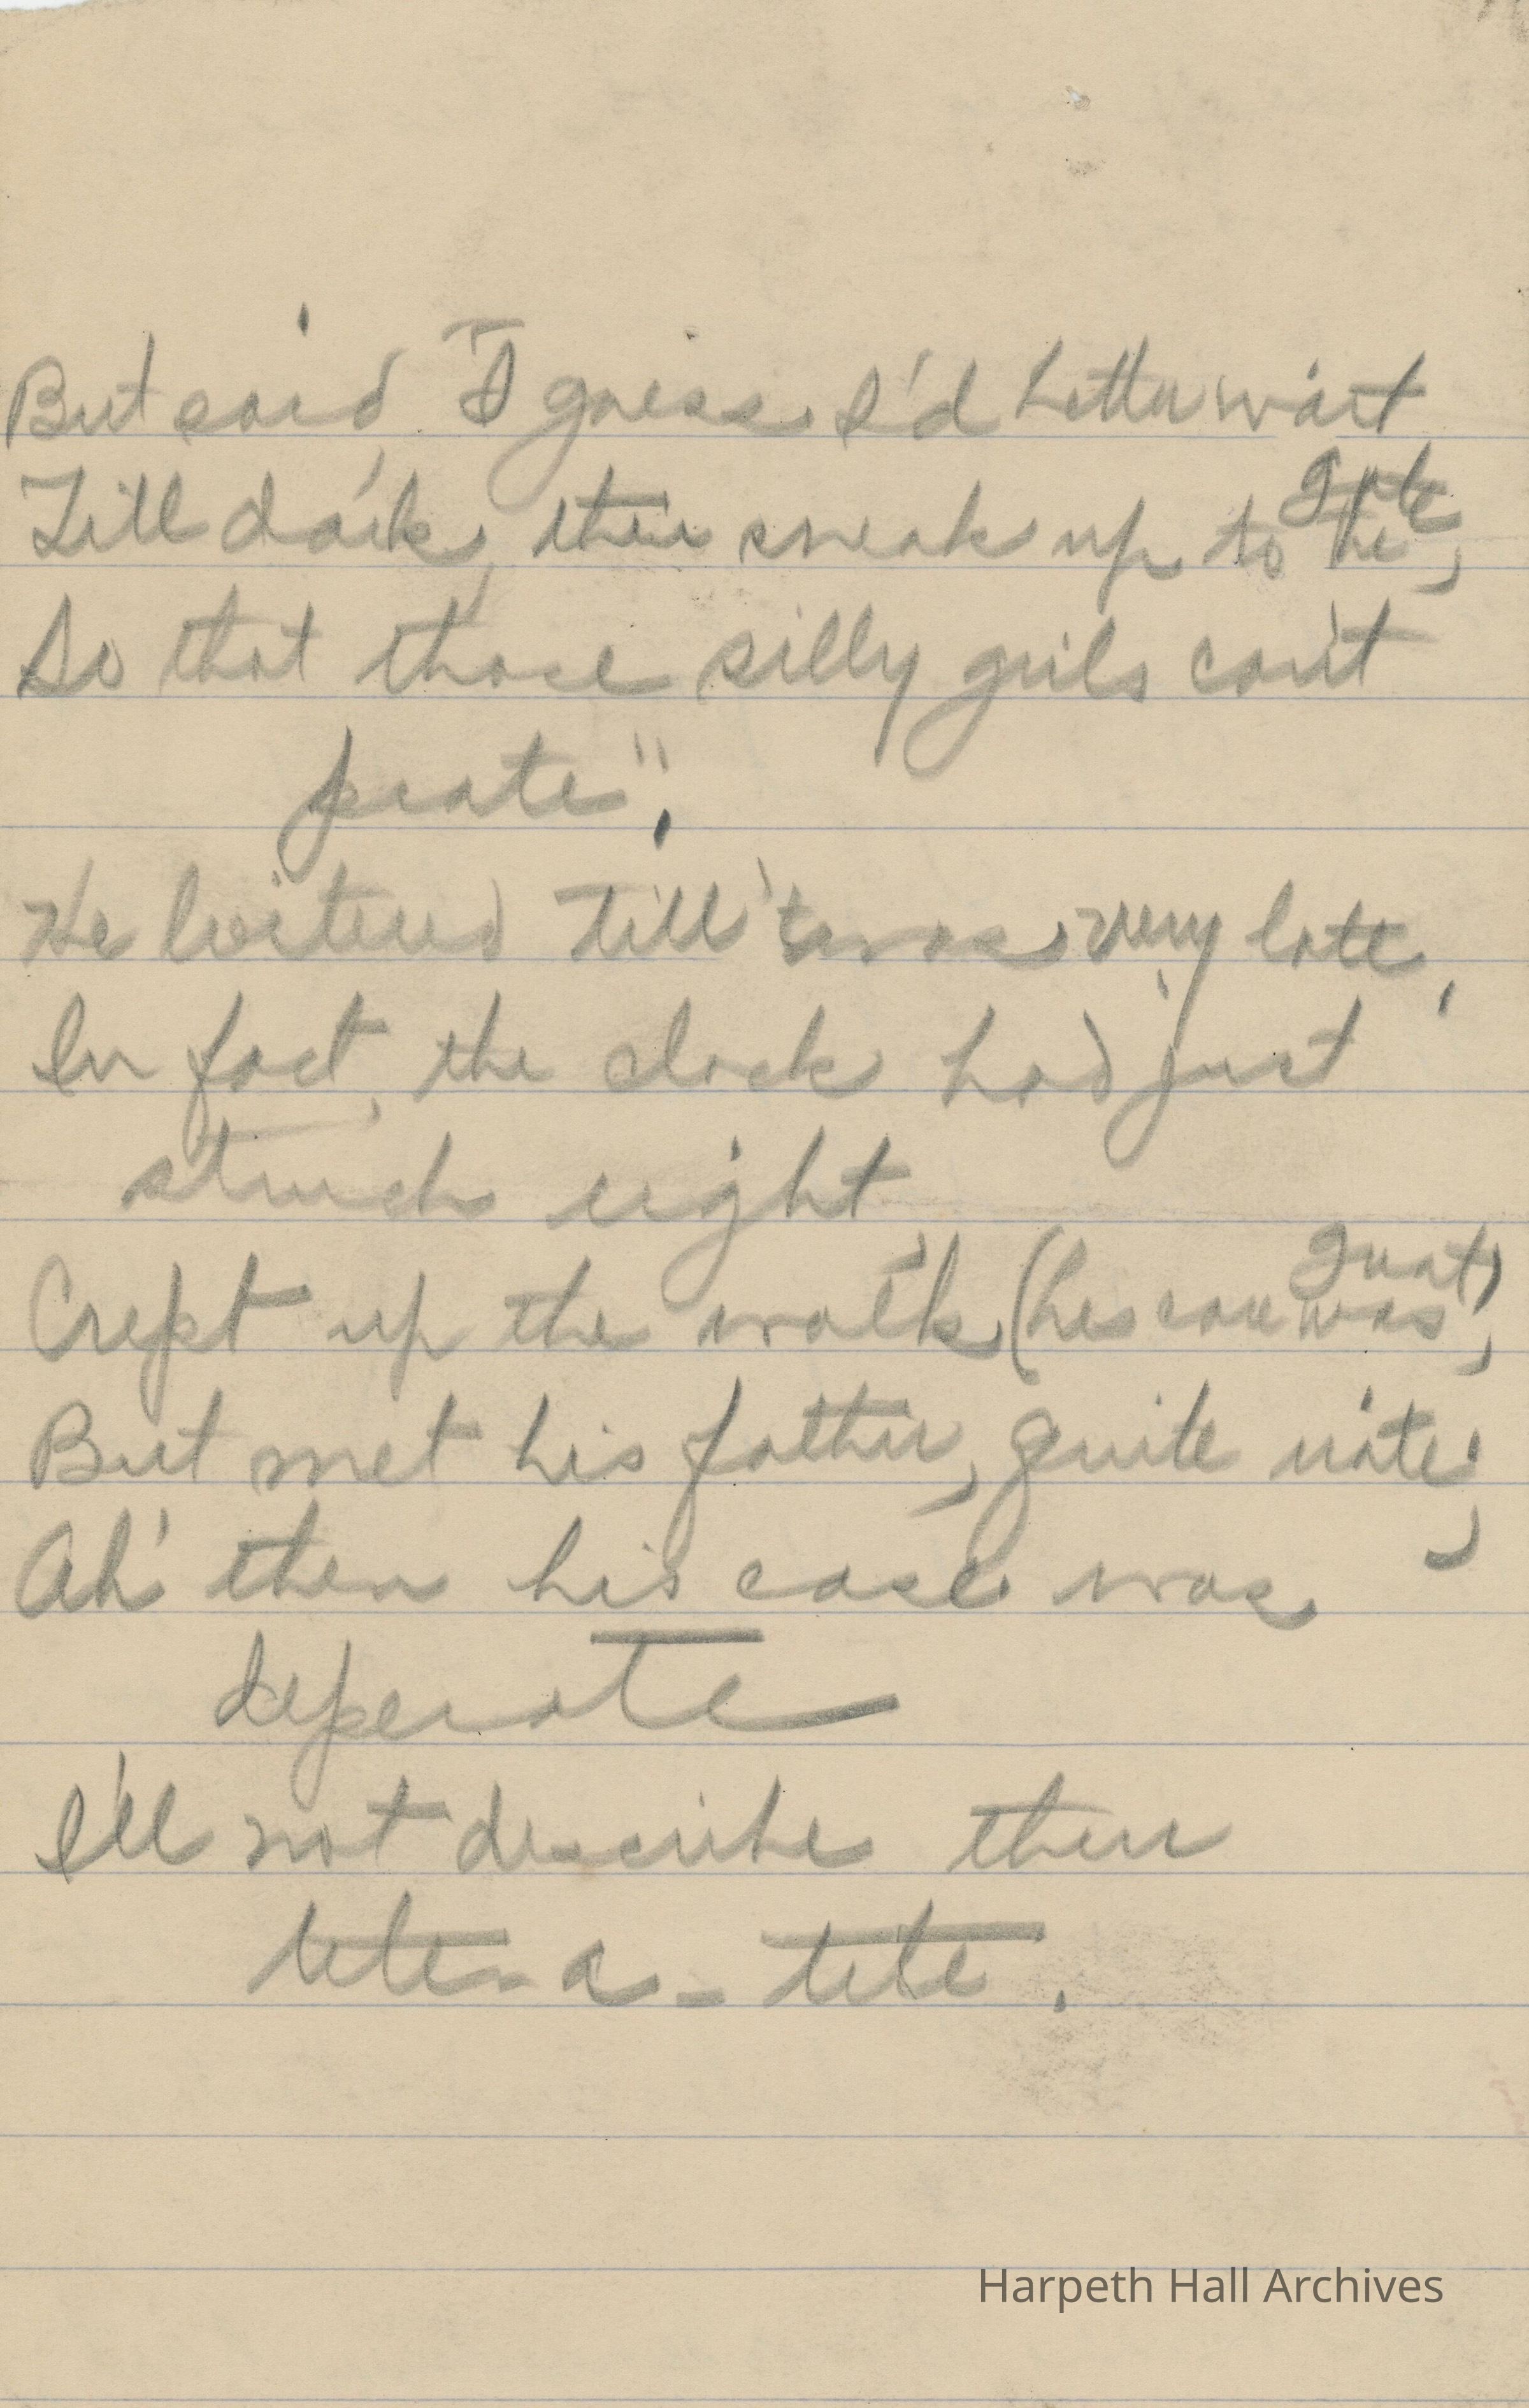 But said, "I guess I'd better wait
Till dark, then sneak up to the gate,
So that those silly girls can't
prate".
He loitered till 'twas very late,
In fact, the clock had just
struck eight
Crept up the walk, (his care was great),
But met his father, quite irate;
Ah' then his case was
deperate
I'll not describe their
tete-a-tete.
Harpeth Hall Archives